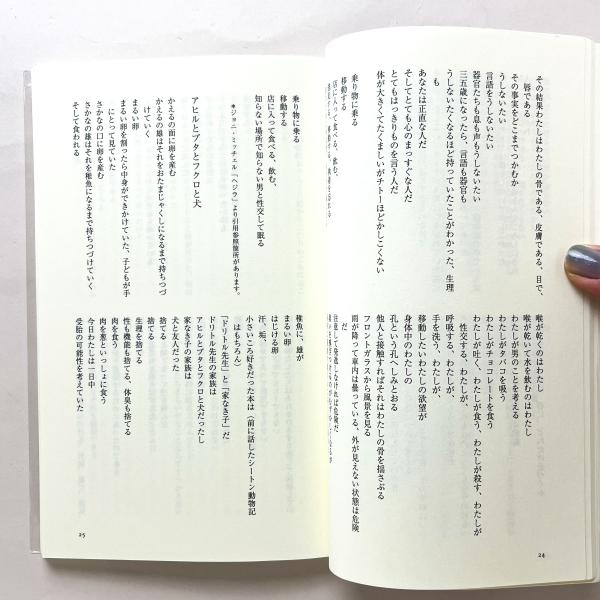 その結果わたしはわたしの骨である、皮膚である、目で、
唇である
その事実をどこまでつかむか
うしないたい
言語をうしないたい
器官たちも息も声もうしないたい
三五歳になったら、言語も器官も
うしないたくなるほど持っていたことがわかった、生理
も
あなたは正直な人だ
そしてとても心のまっすぐな人だ
とてもはっきりものを言う人だ
体が大きくてたくましいがチトーほどかしこくない
乗り物に乗る
移動する
店に入って食べる、飲む、
喉が乾くのはわたし
喉が乾いて水を飲むのはわたし
わたしが男のことを考える
わたしがタバコを吸う
わたしがチョコレートを食う
わたしが吐く、わたしが食う、わたしが殺す、わたしが
性交する、わたしが、
呼吸する、わたしが、
手を洗う、わたしが、
移動したいわたしの欲望が
身体中のわたしの
孔という孔へしみとおる
他人と接触すればそれはわたしの骨を揺さぶる
フロントガラスから風景を見る
雨が降って車内は曇っている、外が見えない状態は危険
だ
注意して発進しなければ危険だ
24
乗り物に乗る
移動する
店に入って食べる、飲む、
知らない場所で知らない男と性交して眠る
*ジョニ・ミッチェル「ヘジラ」より引用参照箇所があります。
アヒルとブタとフクロと犬
かえるの面に卵を産む
かえるの雄はそれをおたまじゃくしになるまで持ちつづ
けていく
まるい卵
まるい卵を割ったら中身ができかけていた、子どもが手
にとって見ていた
さかなの口に卵を産む
さかなの雄はそれを稚魚になるまで持ちつづけていく
そして食われる
稚魚に、雄が
まるい卵
はじける卵
汗、垢、
小さいころ好きだった本は（前に話したシートン動物記
はもちろん）
「ドリトル先生」と「家なき子」だ
ドリトル先生の家族は
アヒルとブタとフクロと犬だったし
家なき子の家族は
犬と友人だった
捨てる
捨てる
生理を捨てる
性も機能も捨てる、体臭も捨てる
肉を食う
肉を葱といっしょに食う
今日わたしは一日中
受胎の可能性を考えていた
25